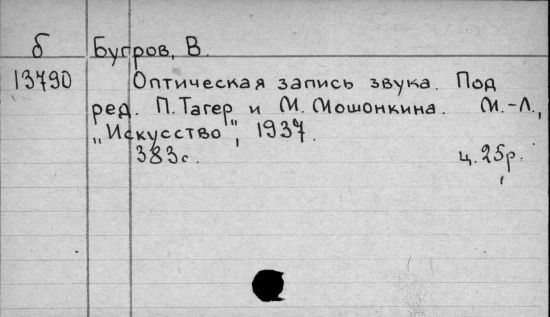 б Бугров, В.
13790 Оптическая запись звука. Под
ред. П. Тагер и М. Мошонкина. М.-Л.,
„Искусство", 1937.
383с. ц. 25р.